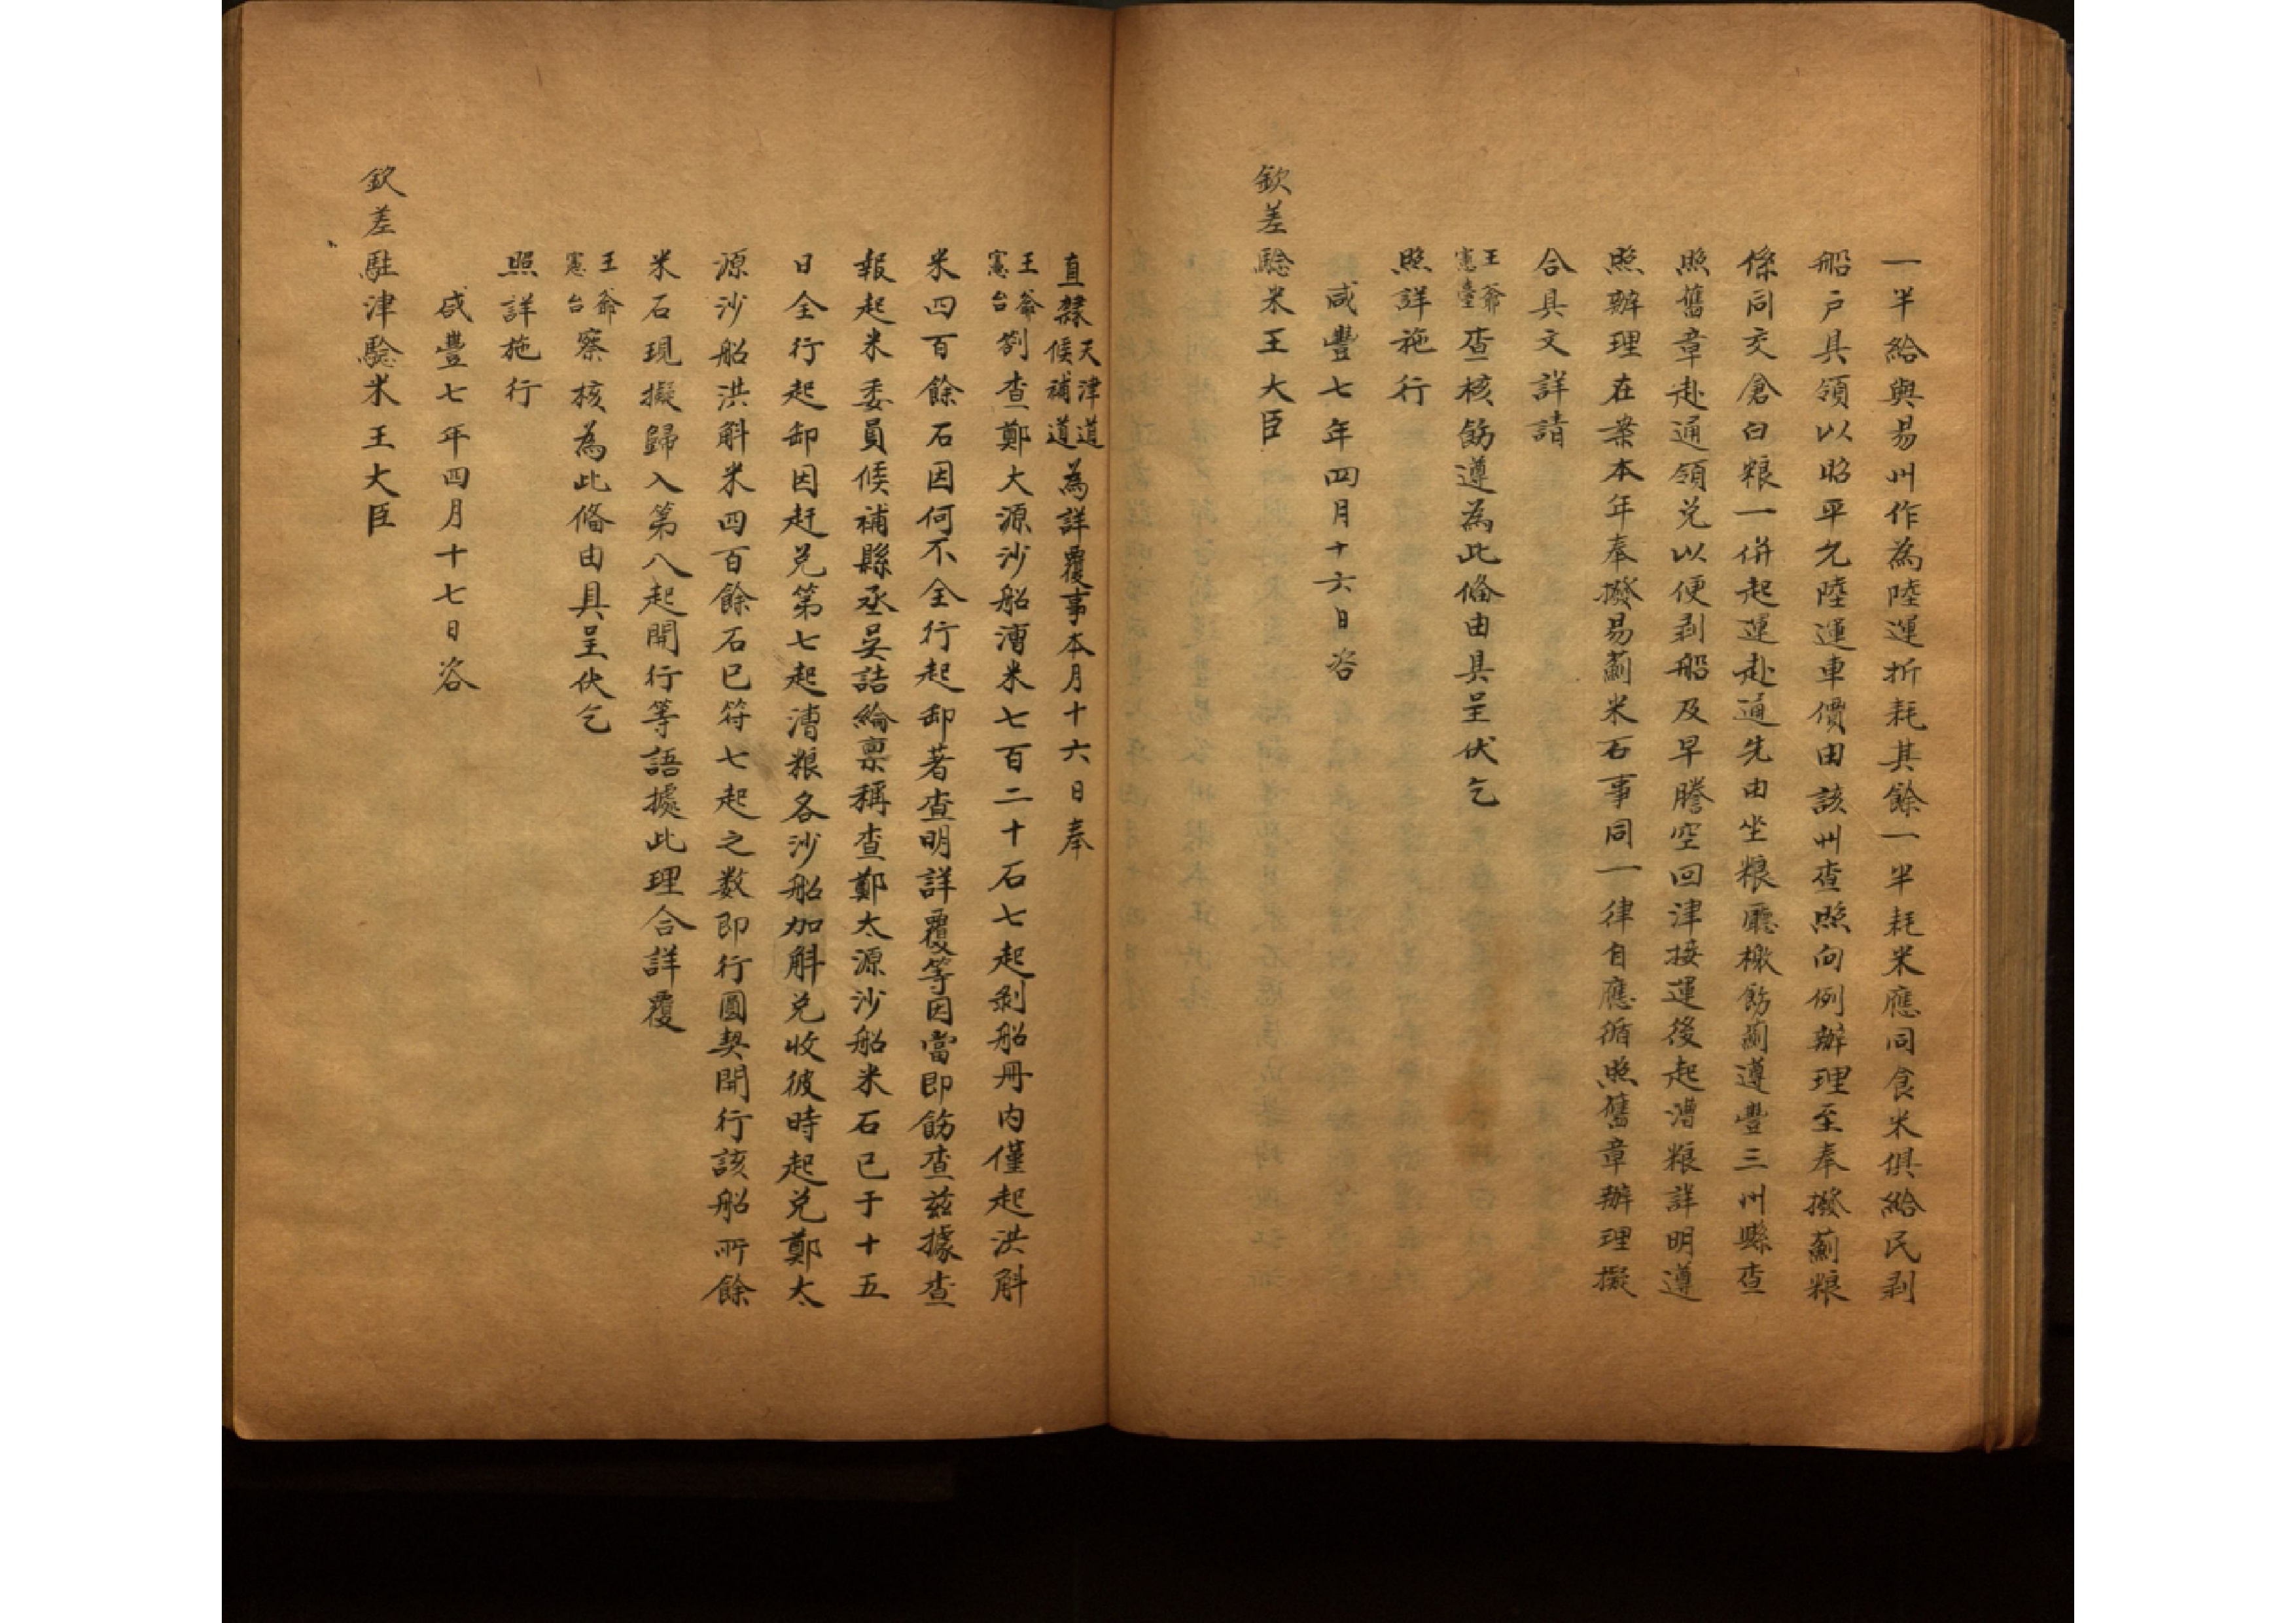 一半給與易州作為陸運折耗其餘一半耗米應同食米俱給民剥
船户具領以昭平允陸運車價由該州查照向例辦理至奉撥薊粮
係同交倉白粮一併起運赴通先由坐粮廳檄飭薊遵豐三州縣查
照舊章赴通領兑以便剥船及早騰空回津接運後起漕粮詳明遵
照辦理在案本年奉撥易薊米石事同一律自應循照舊章辦理擬
合具文詳請
王爺憲臺查核飭遵為此備由具呈伏乞
照詳施行
咸豐七年四月十六日咨
欽差驗米王大臣
直隸天津道候補道為詳覆事本月十六日奉
王爺憲台劄查鄭大源沙船漕米七百二十石七起剥船冊内僅起洪斛
米四百餘石因何不全行起卸著查明詳覆等因當即飭查茲據查
報起米委員候補縣丞吳誥綸禀稱查鄭太源沙船米石已于十五
日全行起卸因赶兑第七起漕粮各沙船加斛兑收彼時起兑鄭太
源沙船洪斛米四百餘石已符七起之数即行圓契開行該船所餘
米石現擬歸入第八起開行等語據此理合詳覆
王爺憲台察核為此備由具呈伏乞
照詳施行
咸豐七年四月十七日咨
欽差駐津驗米王大臣